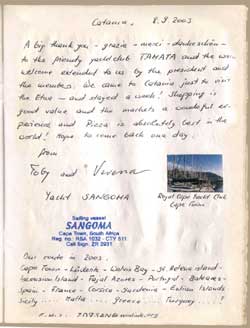 Catania, 8.9.2003
A big thank you - grazie - merci - dankeschön -
to the friendly yachtclub TAMATA and the
welcome extended to us by the president and
the members. We came to Catania just to visit
the Etna - and stayed a week! Shopping is
good value and the markets a wonderful ex-
perience and Pizza is absolutely best in the
world! Hope to come back one day.
from
Toby and Verena
Yacht SANGOMA
Royal Cape Yacht Club
Cape Town
Sailing vessel
SANGOMA
Cape Town, South Africa
Reg. no.: RSA 1032 - CTY 511
Call Sign: ZR 2931
Our route in 2003:
Cape Town - Lüderitz - Walvis Bay - St. Helena island -
Ascension Island - Azores - Portugal - Balearics -
Spain - France - Corsica - Sardenia - Eolian Islands -
Sicily .... Malta .. Greece .... Turquey ....!